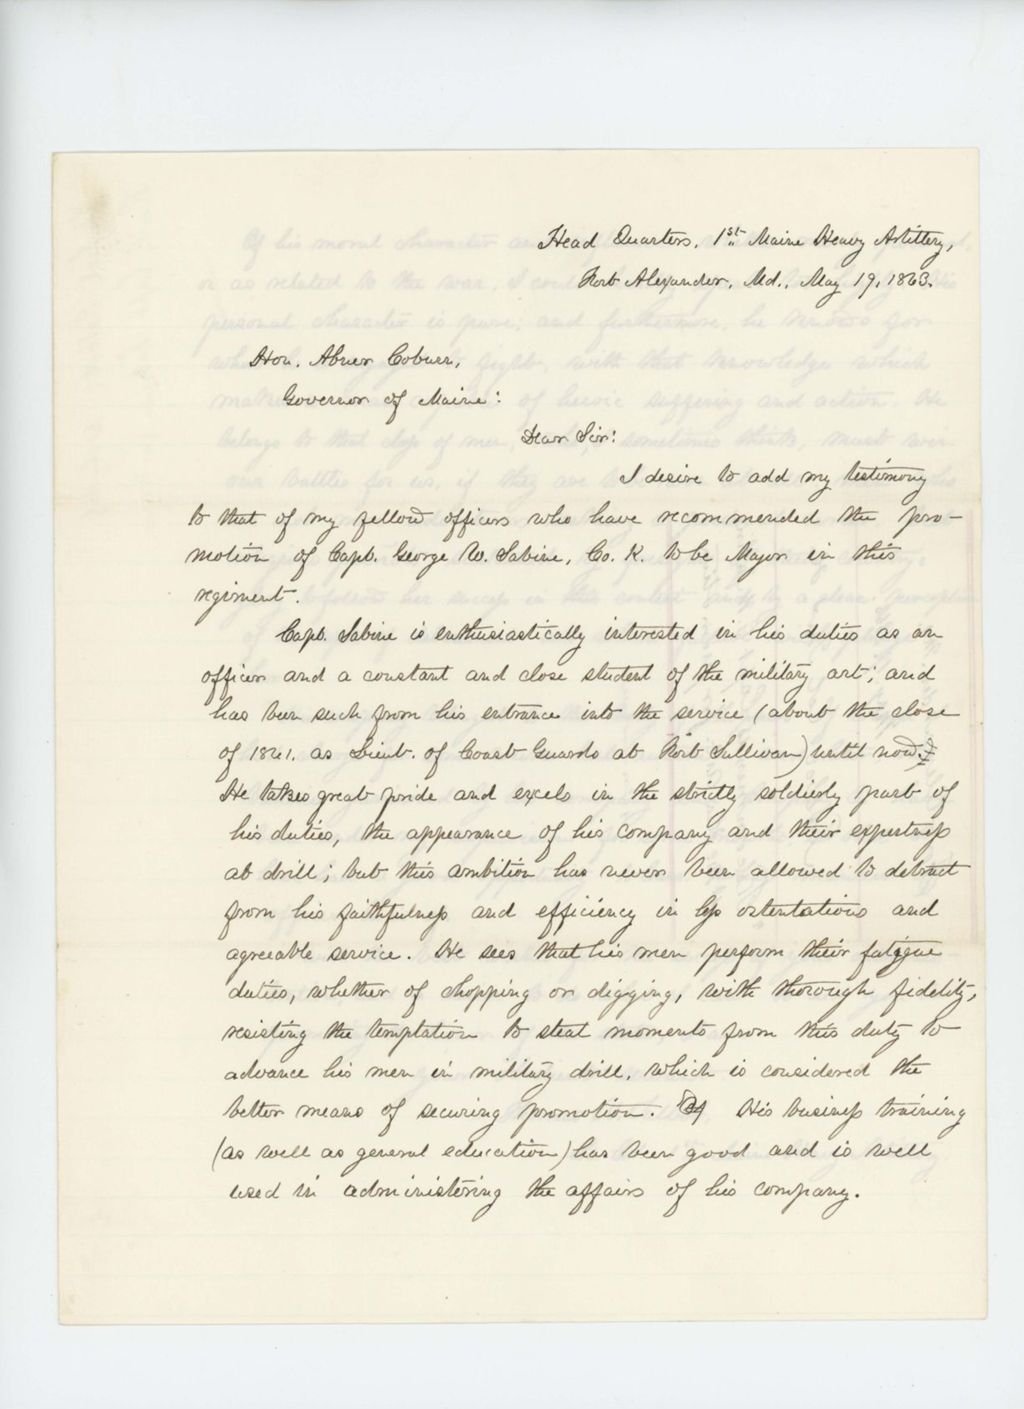 Head Quarters, 1st Maine Heavy Artillery,
Fort Alexander, Md., May 19, 1863.
Hon. Abner Coburn,
Governor of Maine:
Dear Sir:
I desire to add my testimony
to that of my fellow officers who have recommended the pro-
motion of Capt. George W. Sabine, Co. K. to be Major in this
regiment.
Capt. Sabine is enthusiastically interested in his duties as an
officer and a constant and close student of the military art; and
has been such from his entrance into the service (about the close
of 1861. as Lieut. of Coast Guards at Fort Sullivan) until now.
He takes great pride and excels in the strictly soldierly part of
his duties, the appearance of his company and their expertness
at drill; but this ambition has never been allowed to detract
from his faithfulness and efficiency in less ostentatious and
agreeable service. He sees that his men perform their fatigue
duties, whether of chopping or digging, with thorough fidelity,
resisting the temptation to steal moments from this duty to
advance his men in military drill, which is considered the
better means of securing promotion. His business training
(as well as general education) has been good and is well
used in administering the affairs of his company.